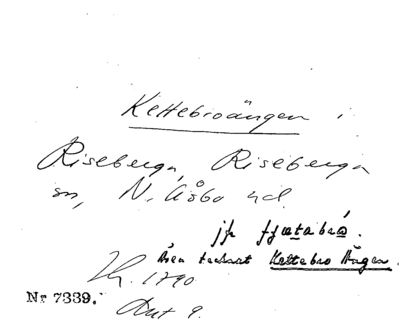 Kettebroängen i
Riseberga, Riseberga
sn, N. Åsbo hd.
jfr
Även tecknat Kettebro Ängen.
1790
Nr 7339.
Akt 9.